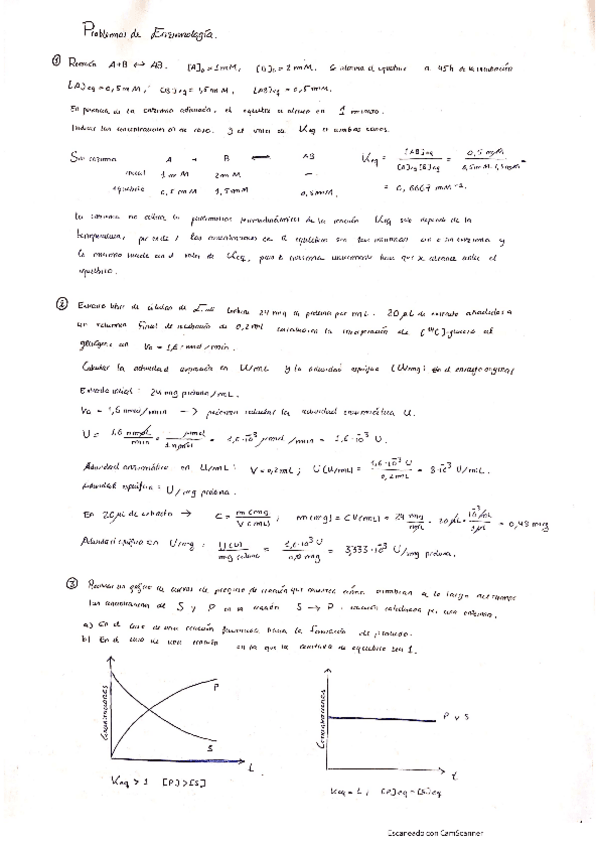 Problemas de Enzimología.
① Reacción A+B ⇔ AB. [A]₀ = 1mM, [B]₀ = 2 mM. el equilibrio a 45h de la
[A]eq = 0,5 mM; [B]eq = 1,5 mM, [AB]eq = 0,5 mM.
En presencia de la enzima adecuada, el equilibrio se alcanza en 1 minuto.
las concentraciones en de caso. y el valor de Keq en ambos casos.
Sin enzima A + B ⇔ AB Keq = [AB]eq / [A]eq [B]eq = 0,5 mM / 0,5 mM · 1,5 mM =
inicial 1 mM 2 mM —
equilibrio 0,5 mM 1,5 mM 0,5 mM. = 0,6667 mM⁻¹.
La enzima no altera los parámetros termodinámicos de la reacción Keq solo depende de la
temperatura, por tanto las concentraciones en el equilibrio son las mismas con o sin enzima y
el valor de Keq, pero la enzima hace que se alcance antes el
equilibrio.
② Extracto libre de células de E. coli contiene 24 mg de proteína por mL. 20 µL de extracto añadidos a
un volumen final de incubación de 0,2 ml catalizan la incorporación de [¹⁴C]-glucosa al
glucógeno con V₀ = 1,6 nmol/min.
Calcular la actividad expresada en U/mL y la actividad específica (U/mg) en el extracto original
Extracto inicial: 24 mg proteína/mL.
V₀ = 1,6 nmol/min → podemos calcular la actividad enzimática U.
U = 1,6 nmol/min · µmol/nmol = 1,6·10⁻³ µmol/min = 1,6·10⁻³ U.
Actividad enzimática en U/mL: V = 0,2 mL; U(U/mL) = 1,6·10⁻³ U / 0,2 mL = 8·10⁻³ U/mL.
Actividad específica: U/mg proteína.
En 20 µL de extracto → C = m (mg) / V (mL); m (mg) = C·V(mL) = 24 mg/mL · 20 µL · 10⁻³ mL / 1 µL = 0,48 mg
Actividad específica en U/mg = U (U) / mg = 1,6·10⁻³ U / 0,48 mg = 3,333·10⁻³ U/mg proteína.
③ Realizar un gráfico de curvas de progreso de reacción que muestren cómo cambian a lo largo del tiempo
las concentraciones de S y P en la reacción S → P, reacción catalizada por una enzima.
a) En el caso de una reacción favorecida hacia la formación de producto.
b) En el caso de una reacción en la que la constante de equilibrio sea 1.
Concentraciones
P
S
t
Keq > 1 [P] > [S]
Concentraciones
P y S
t
Keq = 1; [P]eq = [S]eq
Escaneado con CamScanner